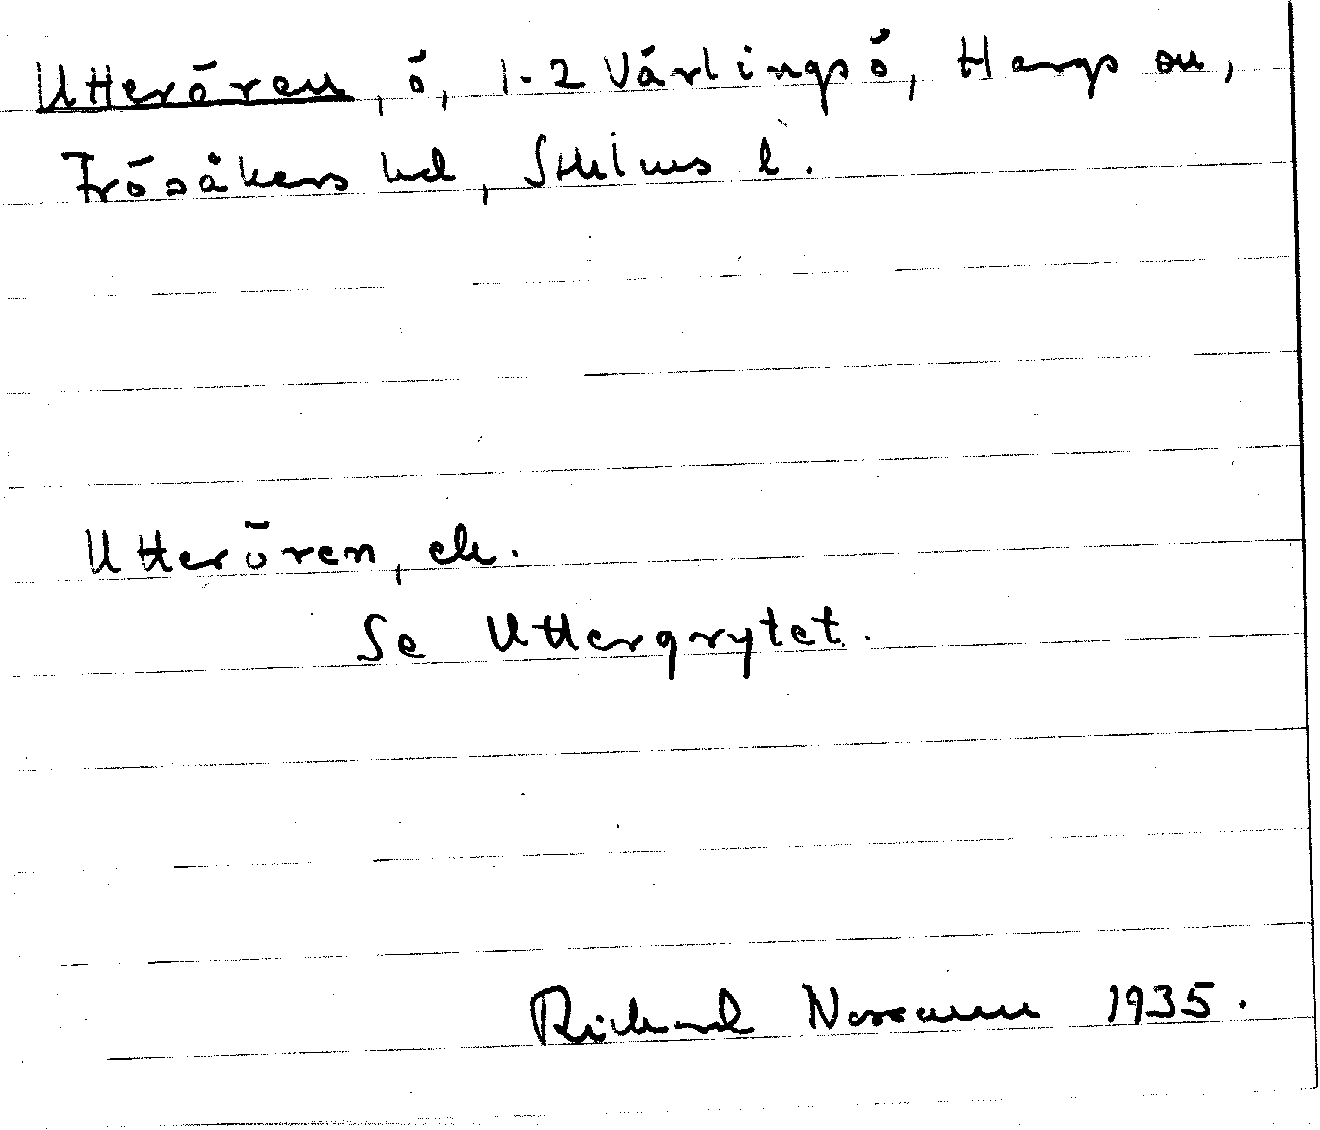 Utterören, ö, 1-2 Värlingsö, Hargs sn,
Frösåkers hd, Sthlms l.
Utterören, ek.
Se Uttergrytet.
Richard 1935.